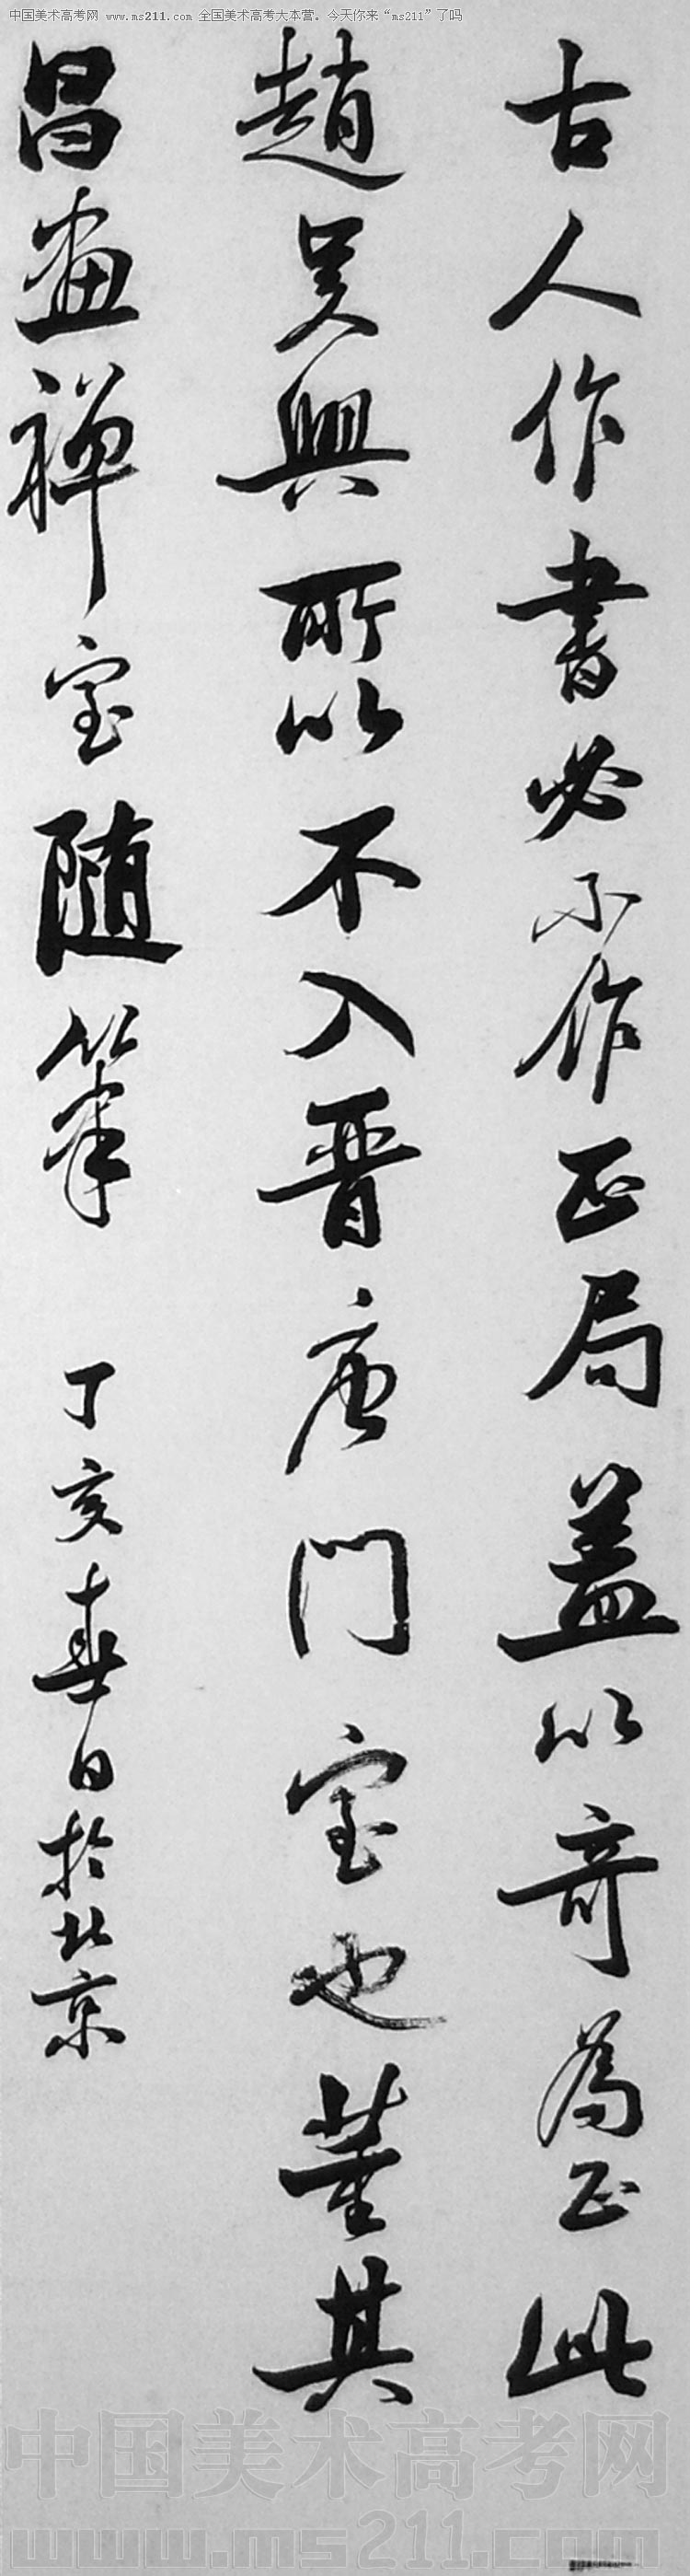 中国美术高考网 www.ms211.com 全国美术高考大本营。今天你来“ms211”了吗
古人作書必不作正局蓋以奇為正此
趙吴興所以不入晋唐門室也董其
昌畫禅室随筆 丁亥春日於北京
中国美术高考网
www.ms211.com